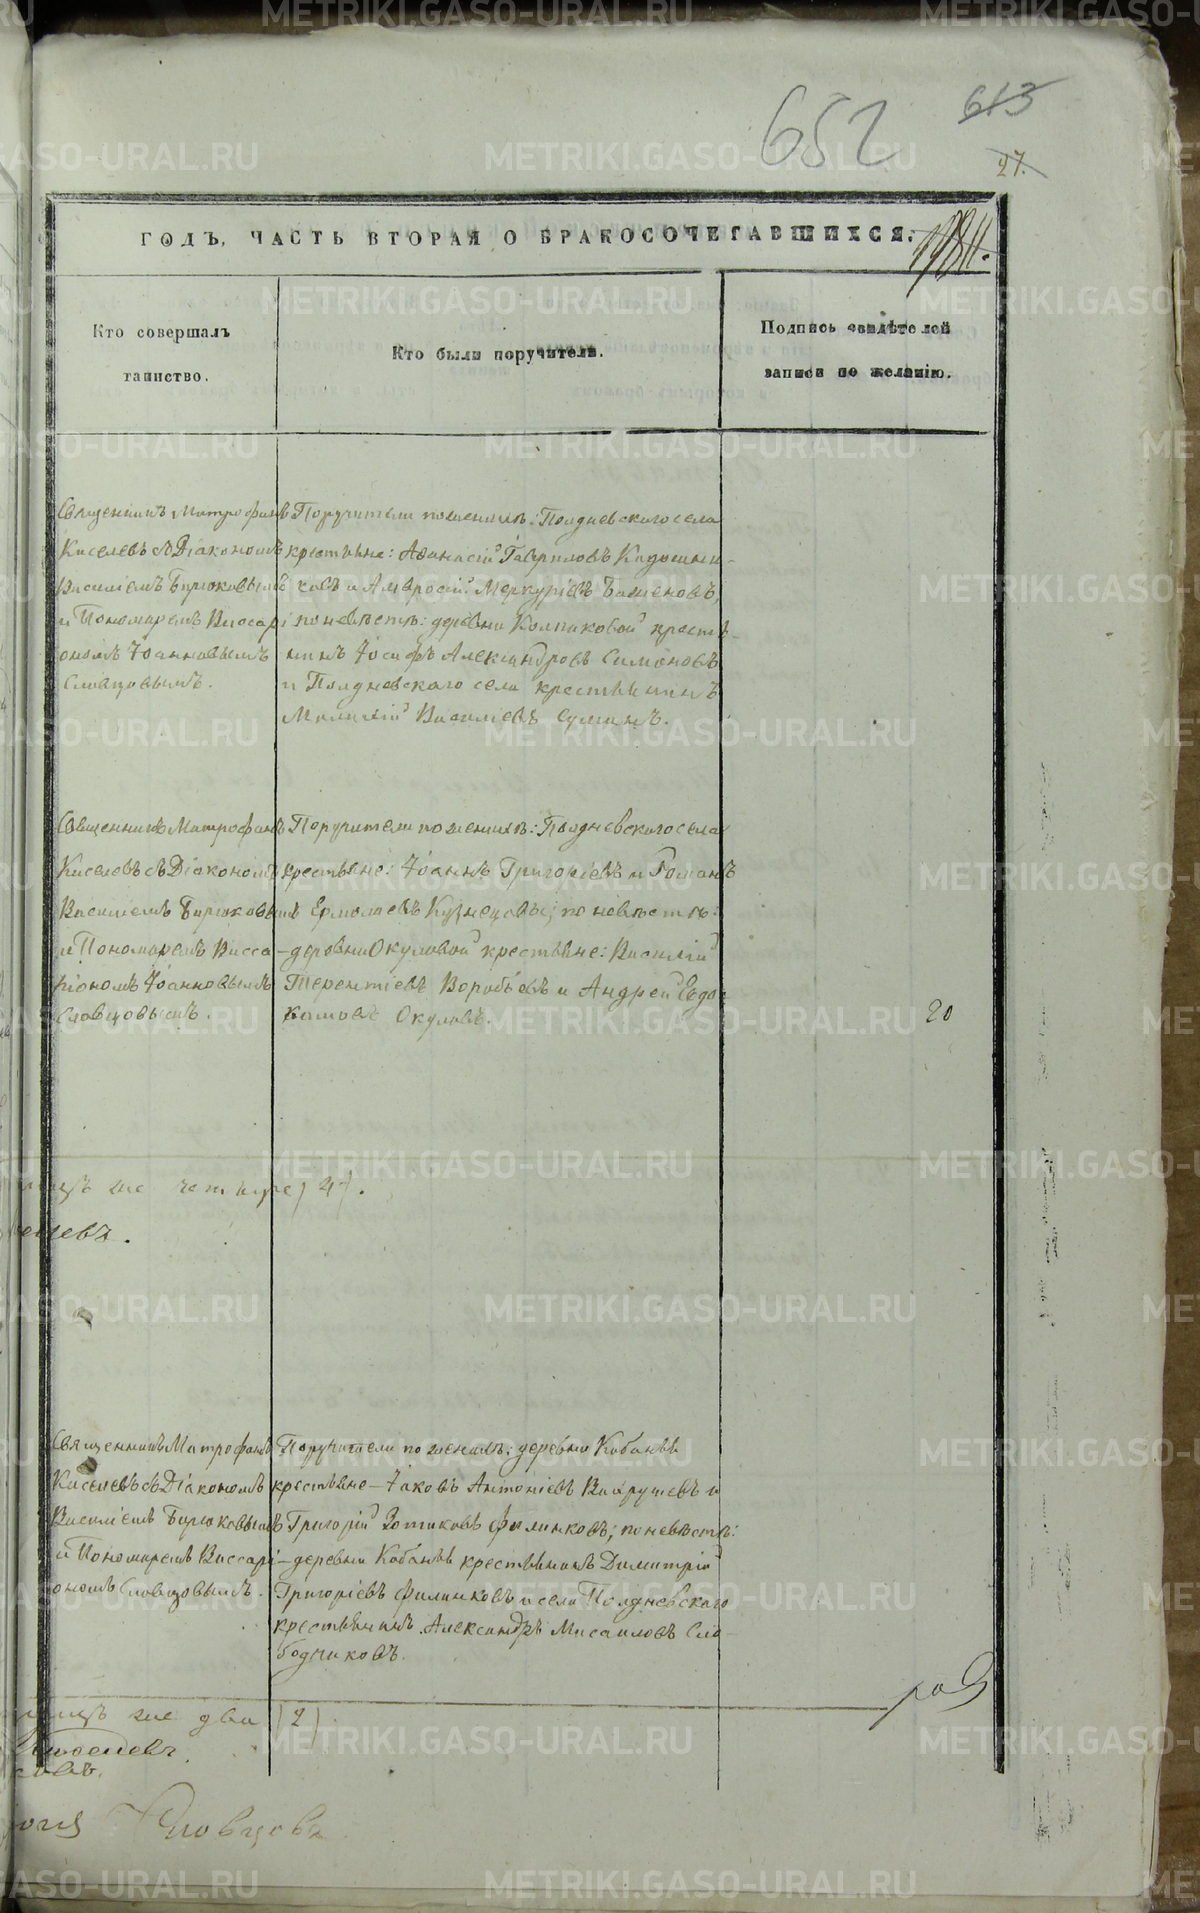 652
613
27.
ГОДЪ, ЧАСТЬ ВТОРАЯ О БРАКОСОЧЕТАВШИХСЯ:
Кто совершалъ
таинство.
Кто были поручители.
Подпись свидѣтелей
записи по желанію.
Священникъ Митрофанъ
Киселевъ съ Діакономъ
Василіемъ Бирюковымъ
и Пономаремъ Виссарі
ономъ Іоанновымъ
Словцовымъ.
Поручители по женихѣ: Полдневскаго села
крестьяне: Аѳанасій Гавриловъ
и Амвросій Меркуріевъ
по невѣстѣ: деревни Колпаковой кресть-
нинъ Іосифъ Александровъ Симоновъ
и Полдневскаго села крестьянинъ
Василіевъ
Священникъ Митрофанъ
Киселевъ съ Діакономъ
Василіемъ Бирюковымъ
и Пономаремъ Висса-
ріономъ Іоанновымъ
Словцовымъ.
Поручители по женихѣ: Полдневскаго села
крестьяне: Іоаннъ Григоріевъ и Романъ
Ермолаевъ Кузнецовы; по невѣстѣ:
деревни Окуловой крестьяне: Василій
Терентіевъ Воробьевъ и Андрей Евдо-
кимовъ Окуловъ.
20
же четыре) 4).
Священникъ Митрофанъ
Киселевъ съ Діакономъ
Василіемъ Бирюковымъ
и Пономаремъ Виссарі-
ономъ Словцовымъ.
Поручители по женихѣ: деревни Кабаньѣ
крестьяне – Іаковъ Антоніевъ Вахрушевъ и
Григорій Зотиковъ Филинковъ; по невѣстѣ:
деревни Кабаньѣ крестьянинъ Димитрій
Григоріевъ Филинковъ и села Полдневскаго
крестьянинъ Александръ Мисаиловъ Сло-
бодчиковъ.
же два (2)
Словцовъ